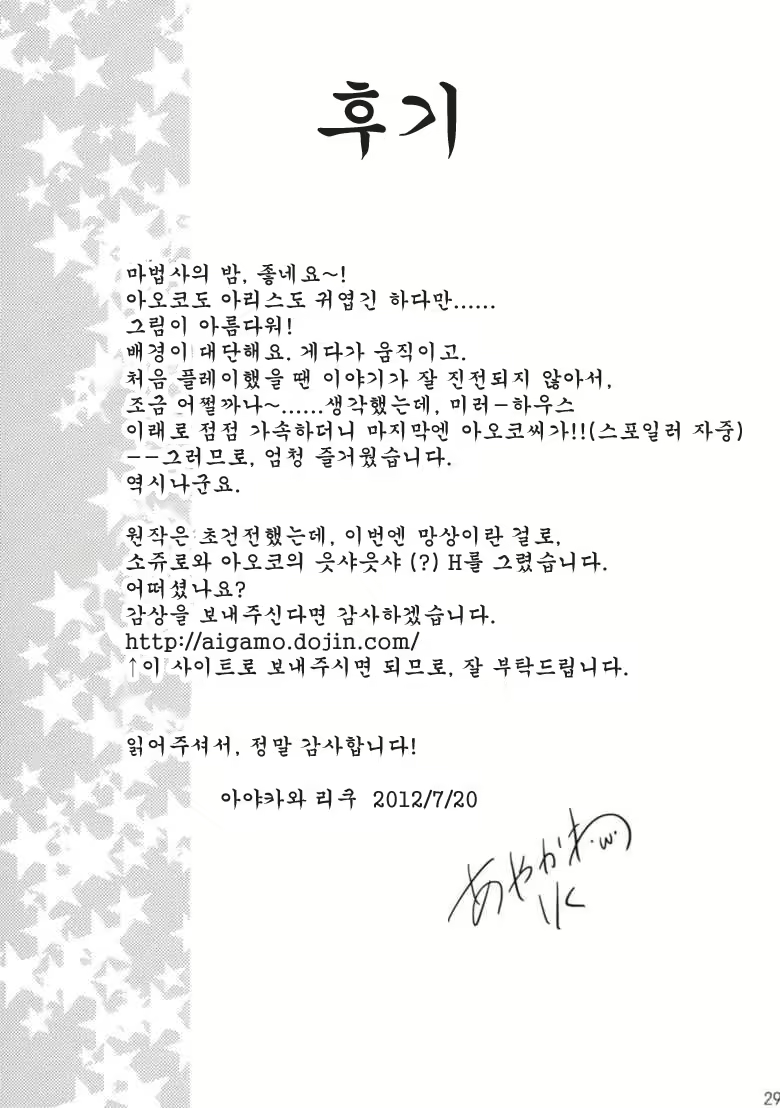 후기
마법사의 밤, 좋네요~!
아오코도 아리스도 귀엽긴 하다만......
그림이 아름다워!
배경이 대단해요. 게다가 움직이고.
처음 플레이했을 땐 이야기가 잘 진전되지 않아서,
조금 어쩔까나~......생각했는데, 미러-하우스
이래로 점점 가속하더니 마지막엔 아오코씨가!!(스포일러 자중)
--그러므로, 엄청 즐거웠습니다.
역시나군요.
원작은 초건전했는데, 이번엔 망상이란 걸로,
소쥬로와 아오코의 읏샤읏샤 (?) H를 그렸습니다.
어떠셨나요?
감상을 보내주신다면 감사하겠습니다.
http://aigamo.dojin.com/
↑이 사이트로 보내주시면 되므로, 잘 부탁드립니다.
읽어주셔서, 정말 감사합니다!
아야카와 리쿠 2012/7/20
あやかわ
りく
29